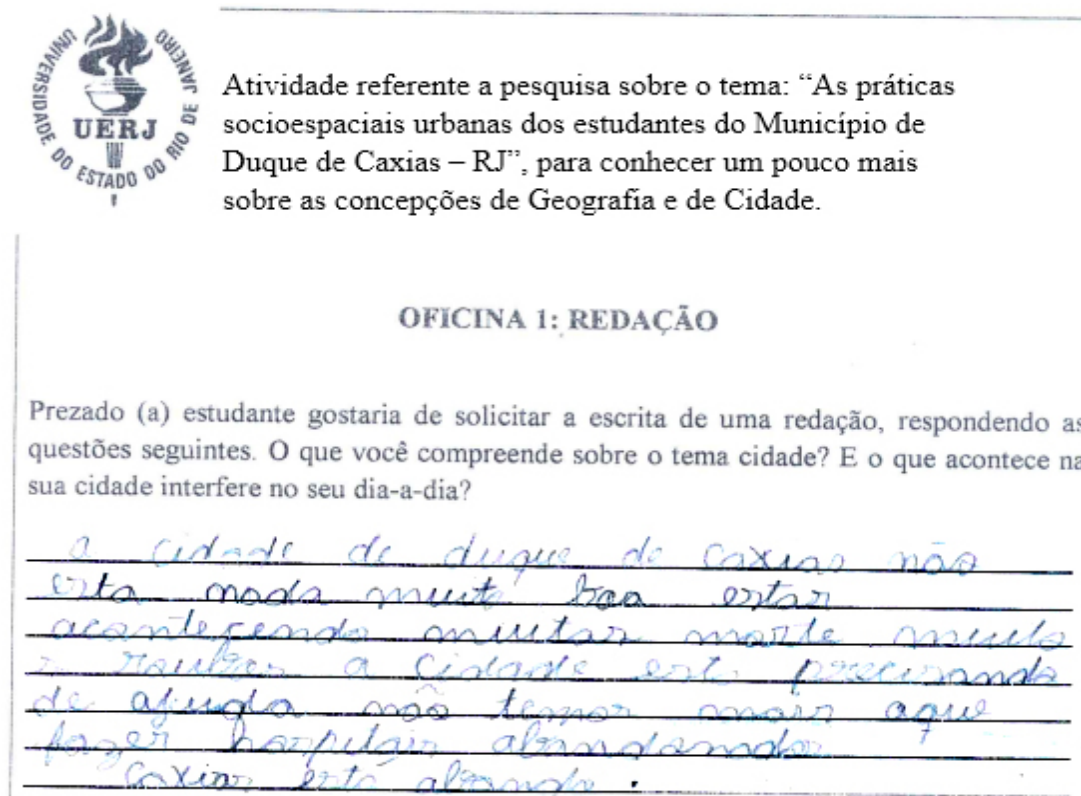 UNIVERSIDADE DO ESTADO DO RIO DE JANEIRO
UERJ
Atividade referente a pesquisa sobre o tema: “As práticas
socioespaciais urbanas dos estudantes do Município de
Duque de Caxias – RJ”, para conhecer um pouco mais
sobre as concepções de Geografia e de Cidade.
OFICINA 1: REDAÇÃO
Prezado (a) estudante gostaria de solicitar a escrita de uma redação, respondendo as
questões seguintes. O que você compreende sobre o tema cidade? E o que acontece na
sua cidade interfere no seu dia-a-dia?
a cidade de duque de caxias não
esta nada muito boa estar
acontecendo muitas morte muito
a cidade esta precisando
de ajuda não temos mais aque
fazer hospitais abandonados
caxias esta